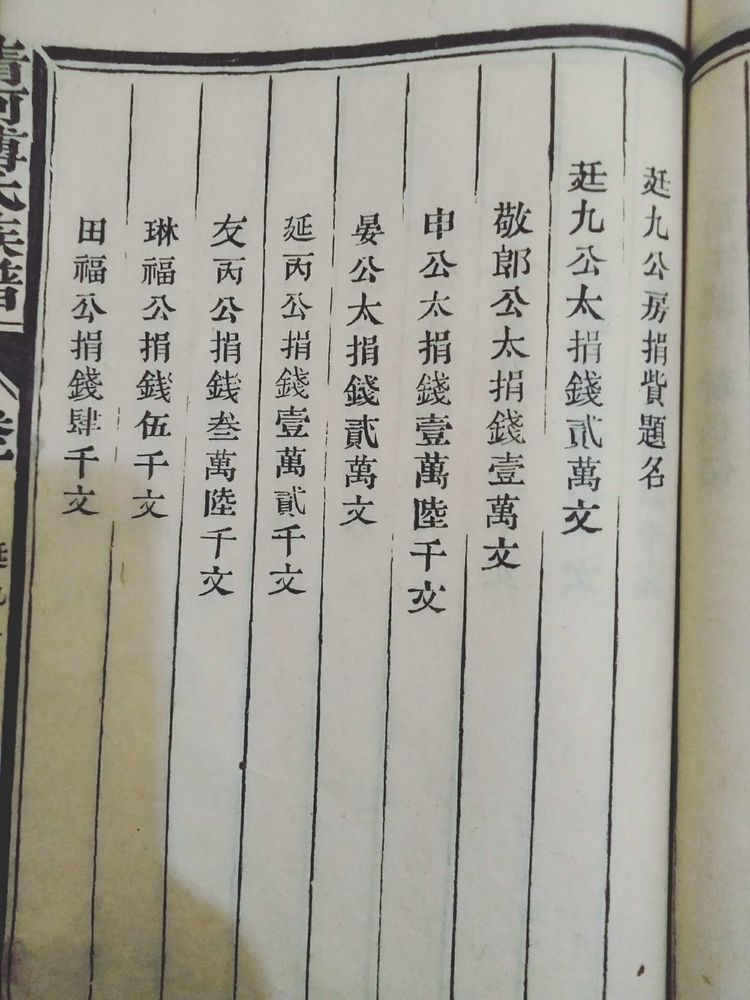 廷九公房捐貲題名
廷九公太捐錢貳萬文
敬郎公太捐錢壹萬文
申公太捐錢壹萬陸千文
晏公太捐錢貳萬文
延丙公捐錢壹萬貳千文
友丙公捐銭叁萬陸千文
琳福公捐銭伍千文
田福公捐錢肆千文
清河傅氏族譜